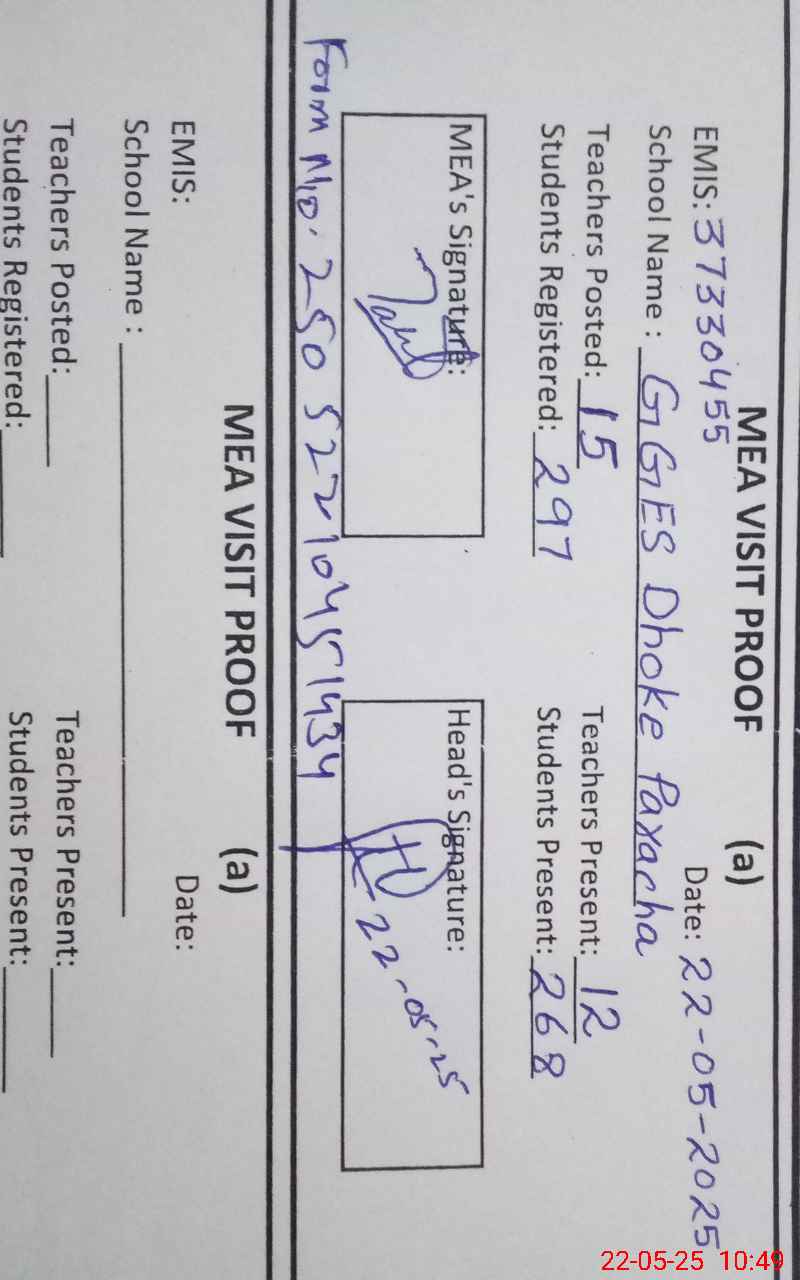 MEA VISIT PROOF (a)
EMIS: 37330455 Date: 22-05-2025
School Name : GGES Dhoke Paracha
Teachers Posted: 15 Teachers Present: 12
Students Registered: 297 Students Present: 268
MEA's Signature: Head's Signature:
22-05-25
Form No. 25052210451434
MEA VISIT PROOF (a)
EMIS: Date:
School Name :
Teachers Posted: Teachers Present:
Students Registered: Students Present:
22-05-25 10:49